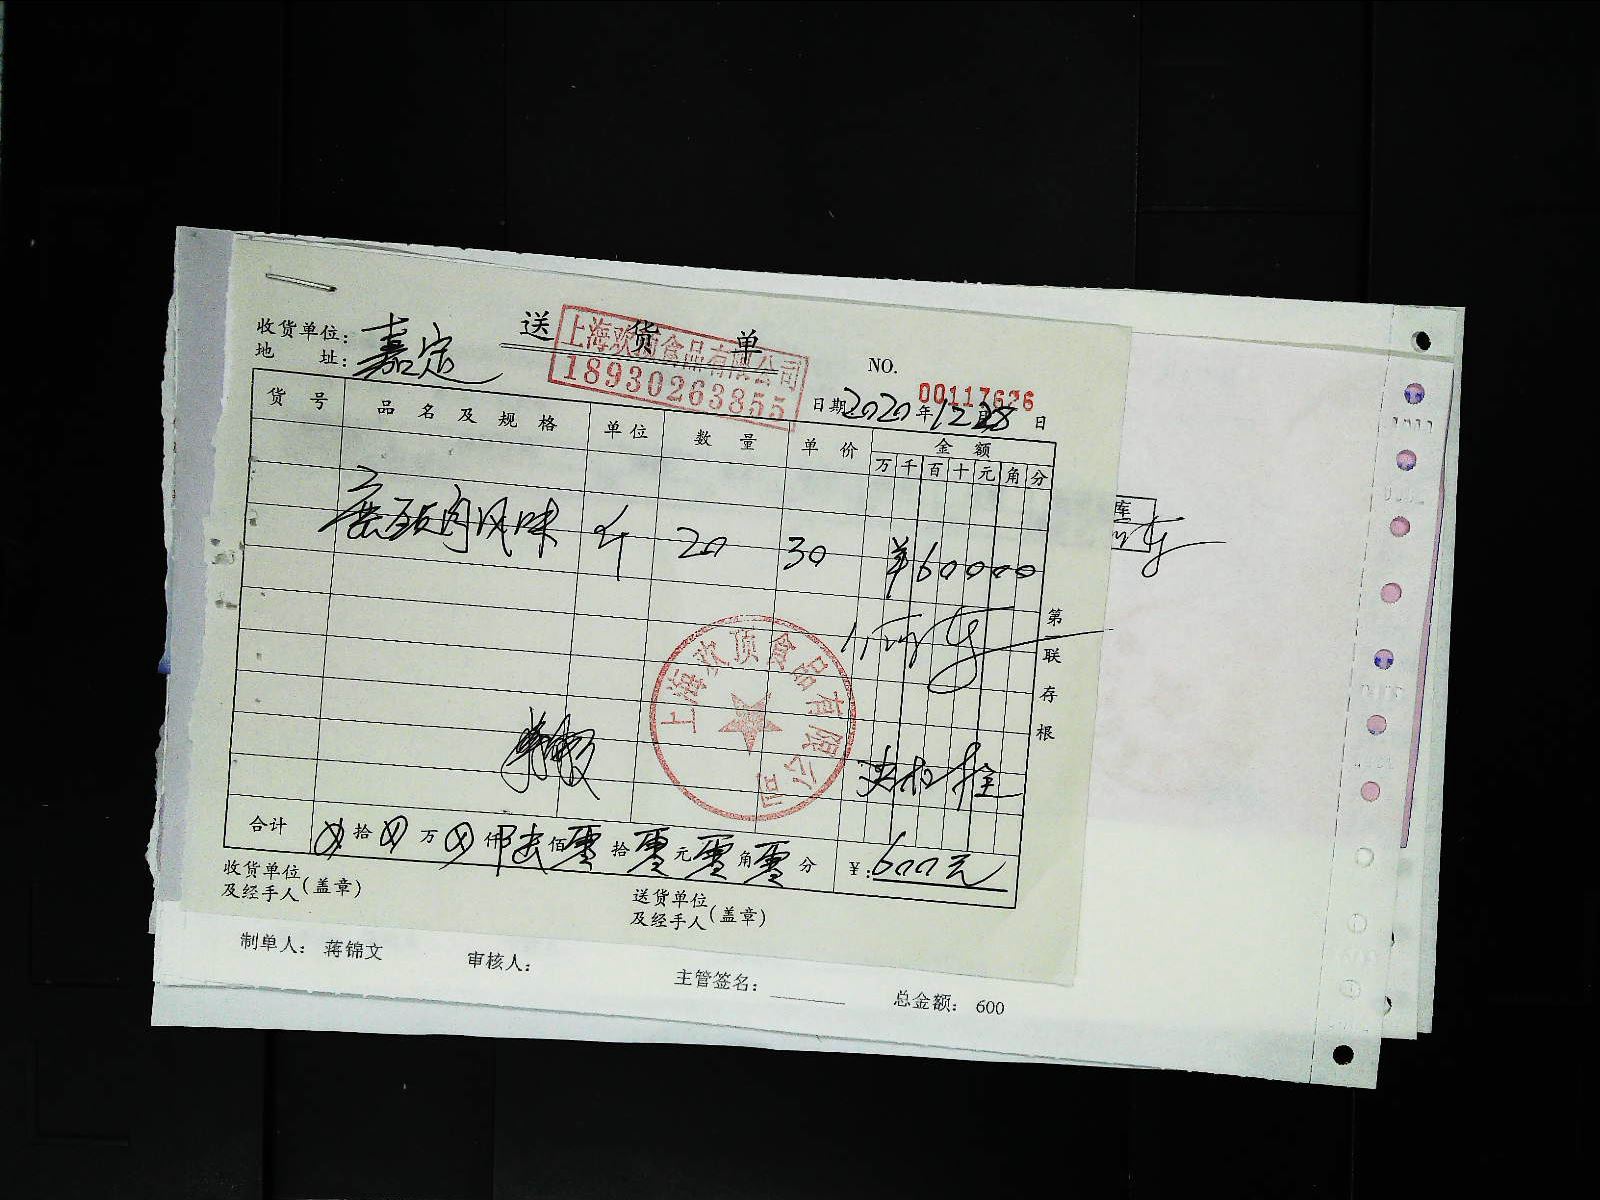 送货单
上海欢顶食品有限公司
18930263855
收货单位：嘉定
地 址：
NO. 00117626
日期 2020年12月28日
货号 品名及规格 单位 数量 单价 金额
万 千 百 十 元 角 分
风味 斤 20 30 ¥60000
库
第一联存根
上海欢顶食品有限公司
合计 拾 万 仟 佰零拾零元零角零分 ¥：600元
收货单位
及经手人（盖章）
送货单位
及经手人（盖章）
制单人： 蒋锦文 审核人： 主管签名： 总金额： 600